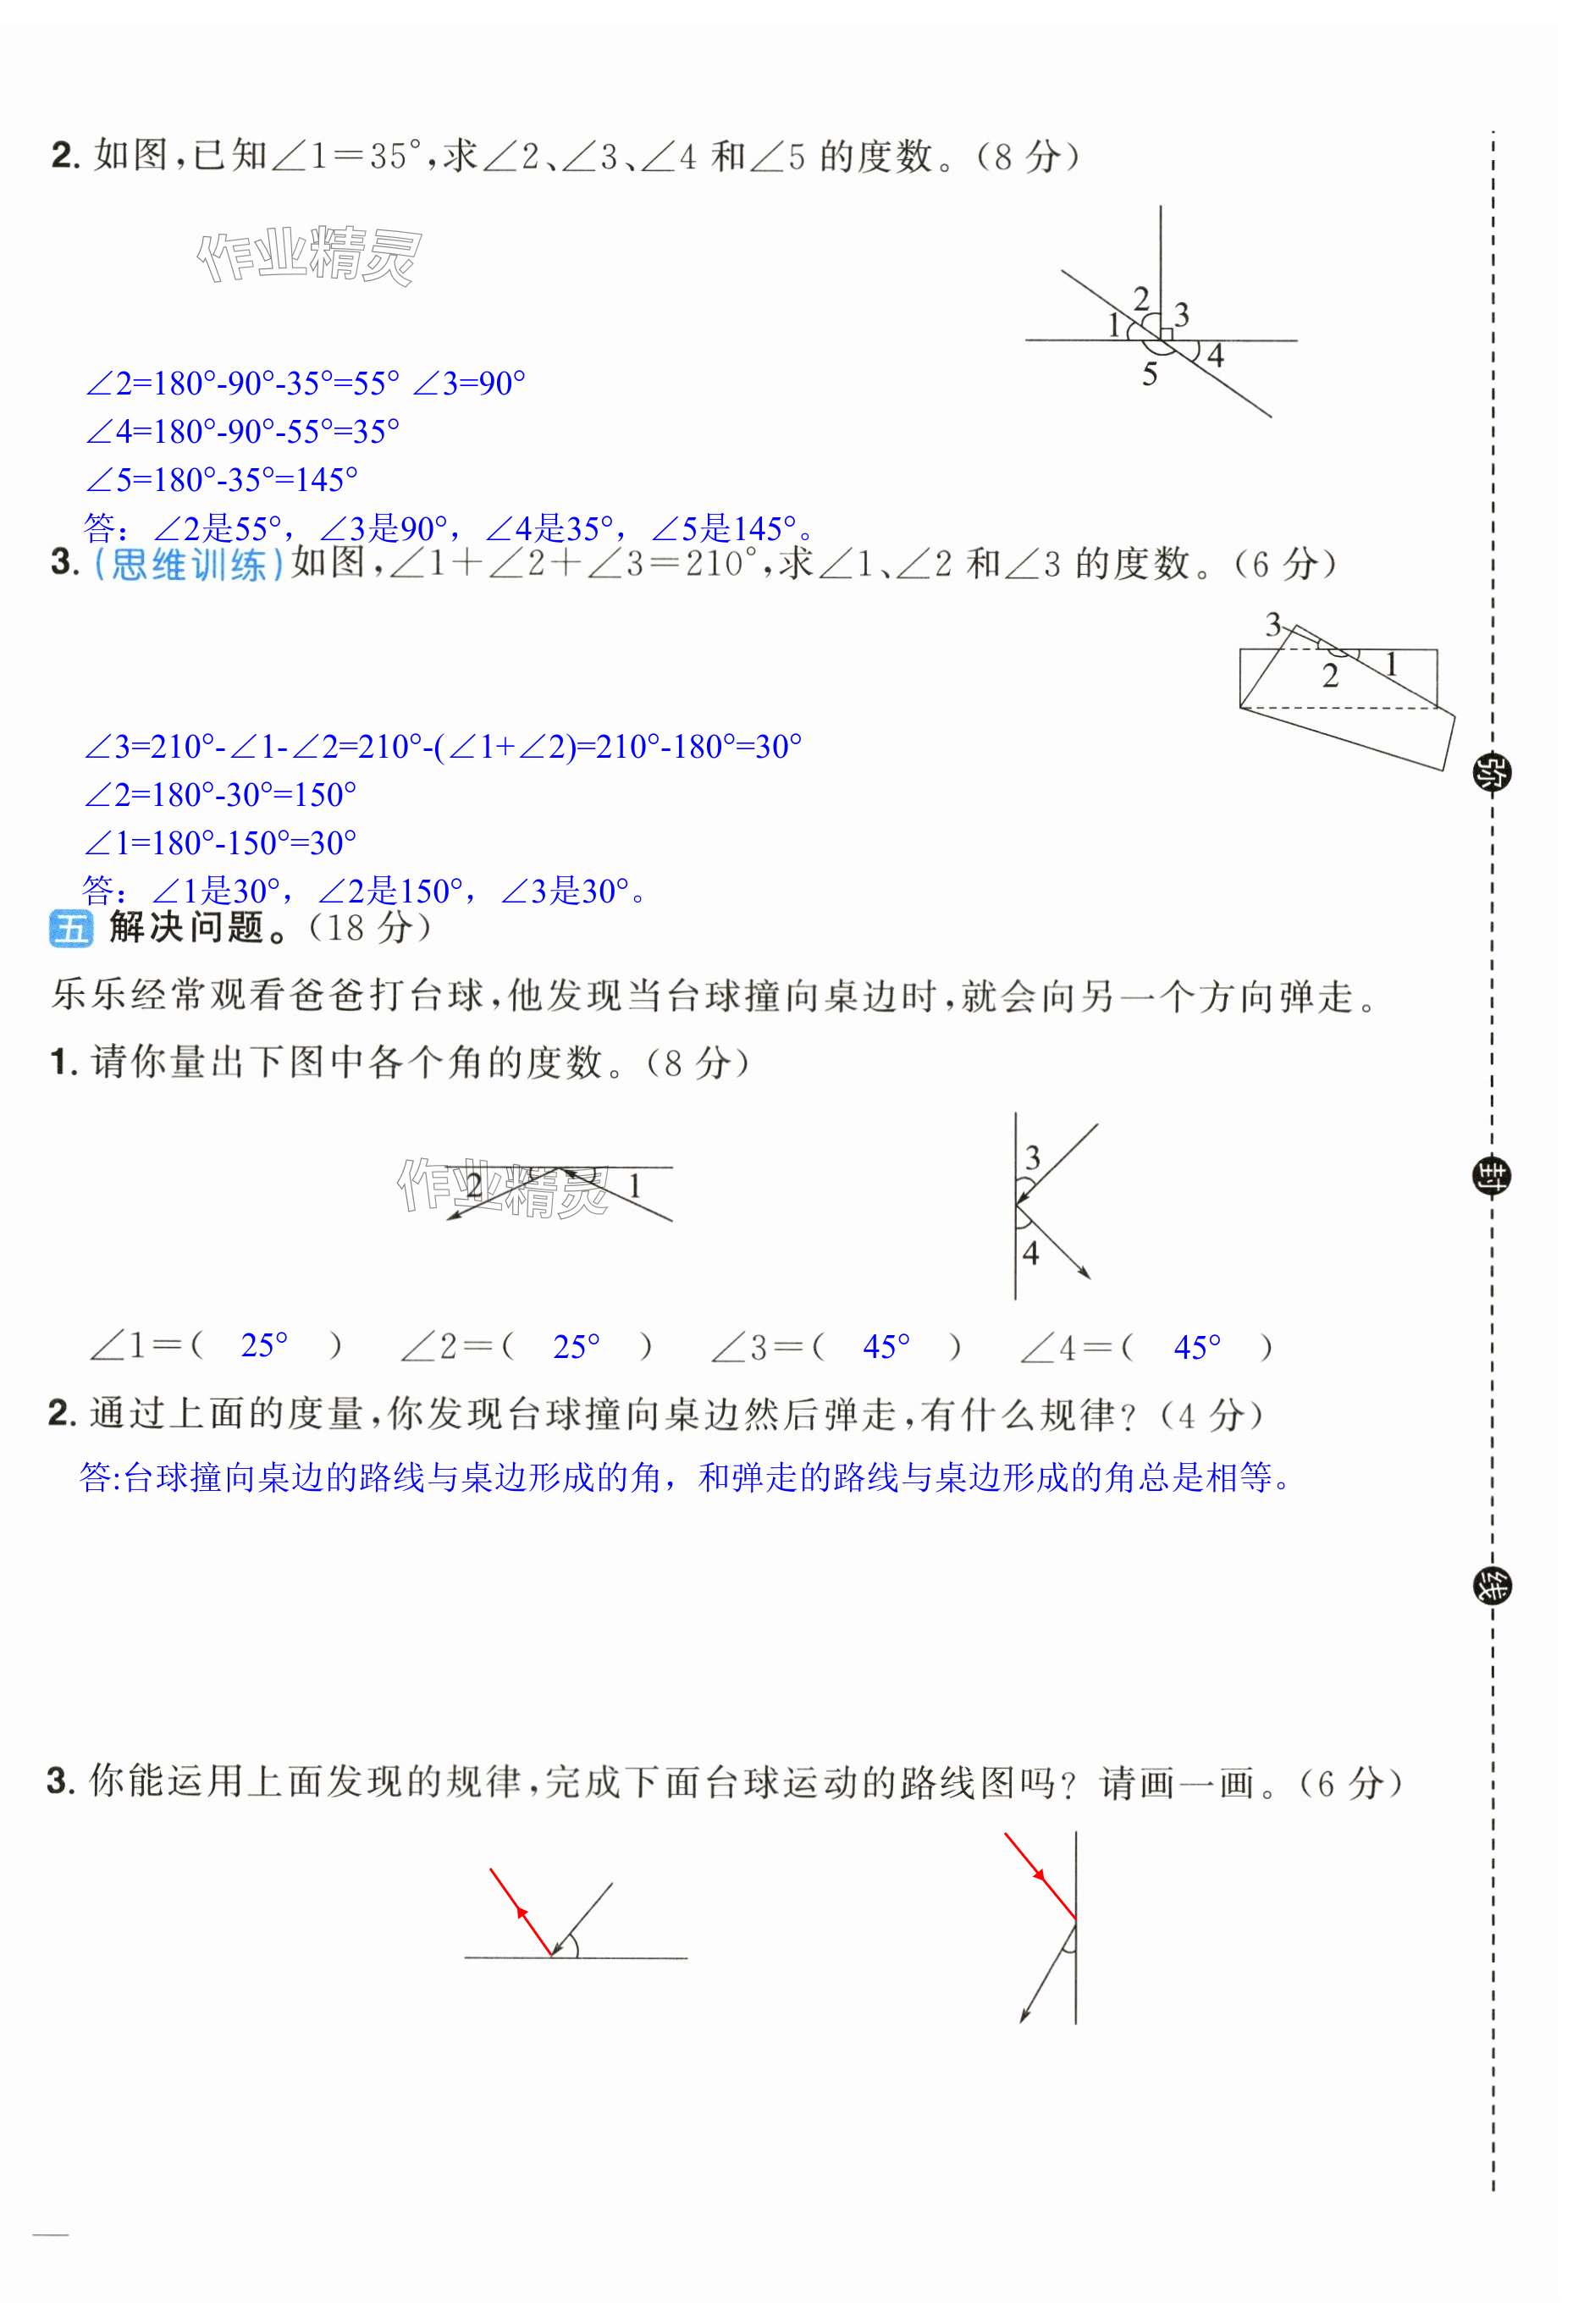 2. 如图,已知∠1=35°,求∠2、∠3、∠4 和∠5 的度数。(8 分)
作业精灵
2
3
1
4
5
∠2=180°-90°-35°=55° ∠3=90°
∠4=180°-90°-55°=35°
∠5=180°-35°=145°
答：∠2是55°，∠3是90°，∠4是35°，∠5是145°。
3. (思维训练)如图,∠1+∠2+∠3=210°,求∠1、∠2 和∠3 的度数。(6 分)
3
2
1
∠3=210°-∠1-∠2=210°-(∠1+∠2)=210°-180°=30°
∠2=180°-30°=150°
∠1=180°-150°=30°
答：∠1是30°，∠2是150°，∠3是30°。
弥
五 解决问题。(18 分)
乐乐经常观看爸爸打台球,他发现当台球撞向桌边时,就会向另一个方向弹走。
1. 请你量出下图中各个角的度数。(8 分)
作业精灵
2
1
3
4
封
∠1=( 25° ) ∠2=( 25° ) ∠3=( 45° ) ∠4=( 45° )
2. 通过上面的度量,你发现台球撞向桌边然后弹走,有什么规律? (4 分)
答:台球撞向桌边的路线与桌边形成的角，和弹走的路线与桌边形成的角总是相等。
线
3. 你能运用上面发现的规律,完成下面台球运动的路线图吗? 请画一画。(6 分)